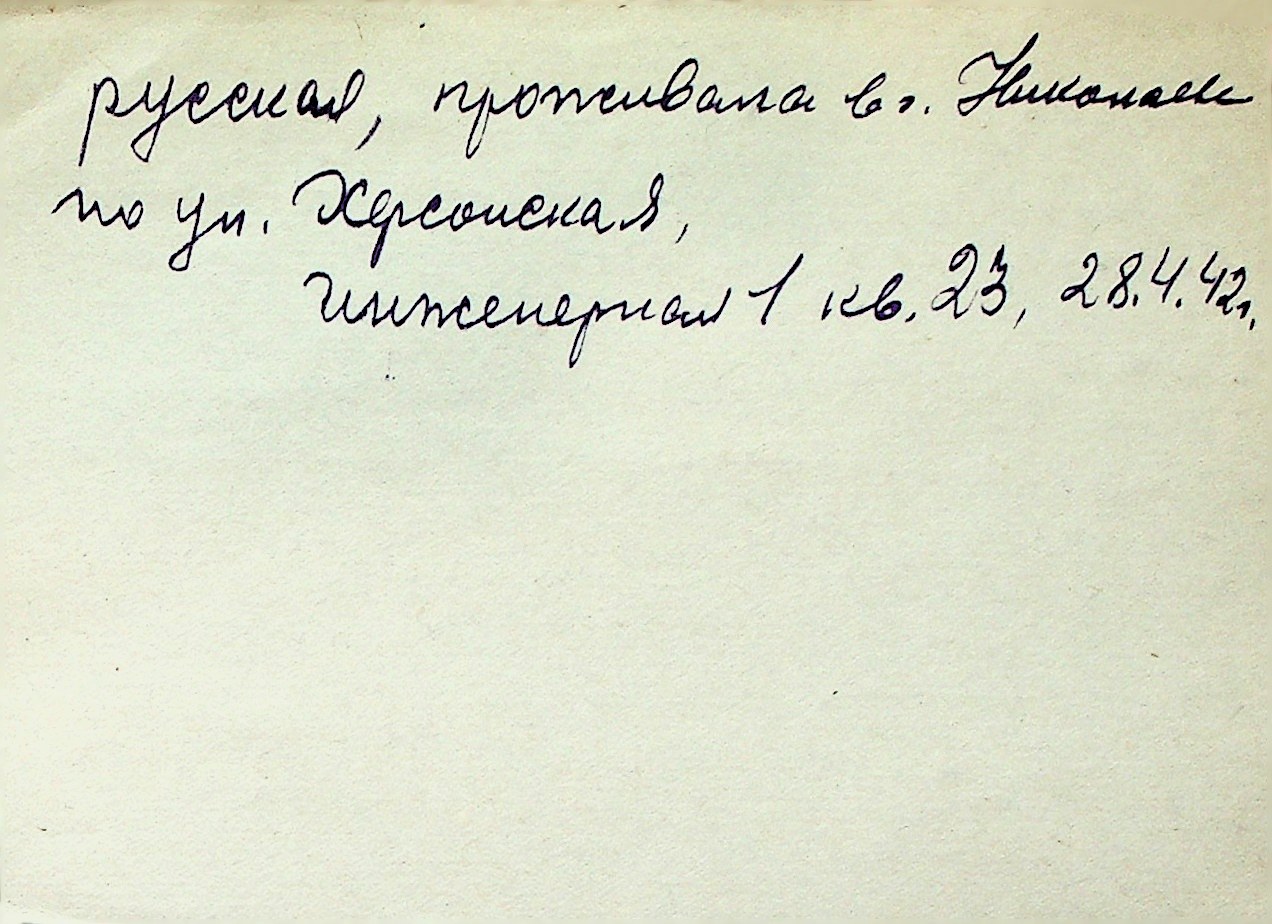 русская, проживала в г. Николаеве
по ул. Херсонская,
Инженерная 1 кв. 23, 28.4.42г.